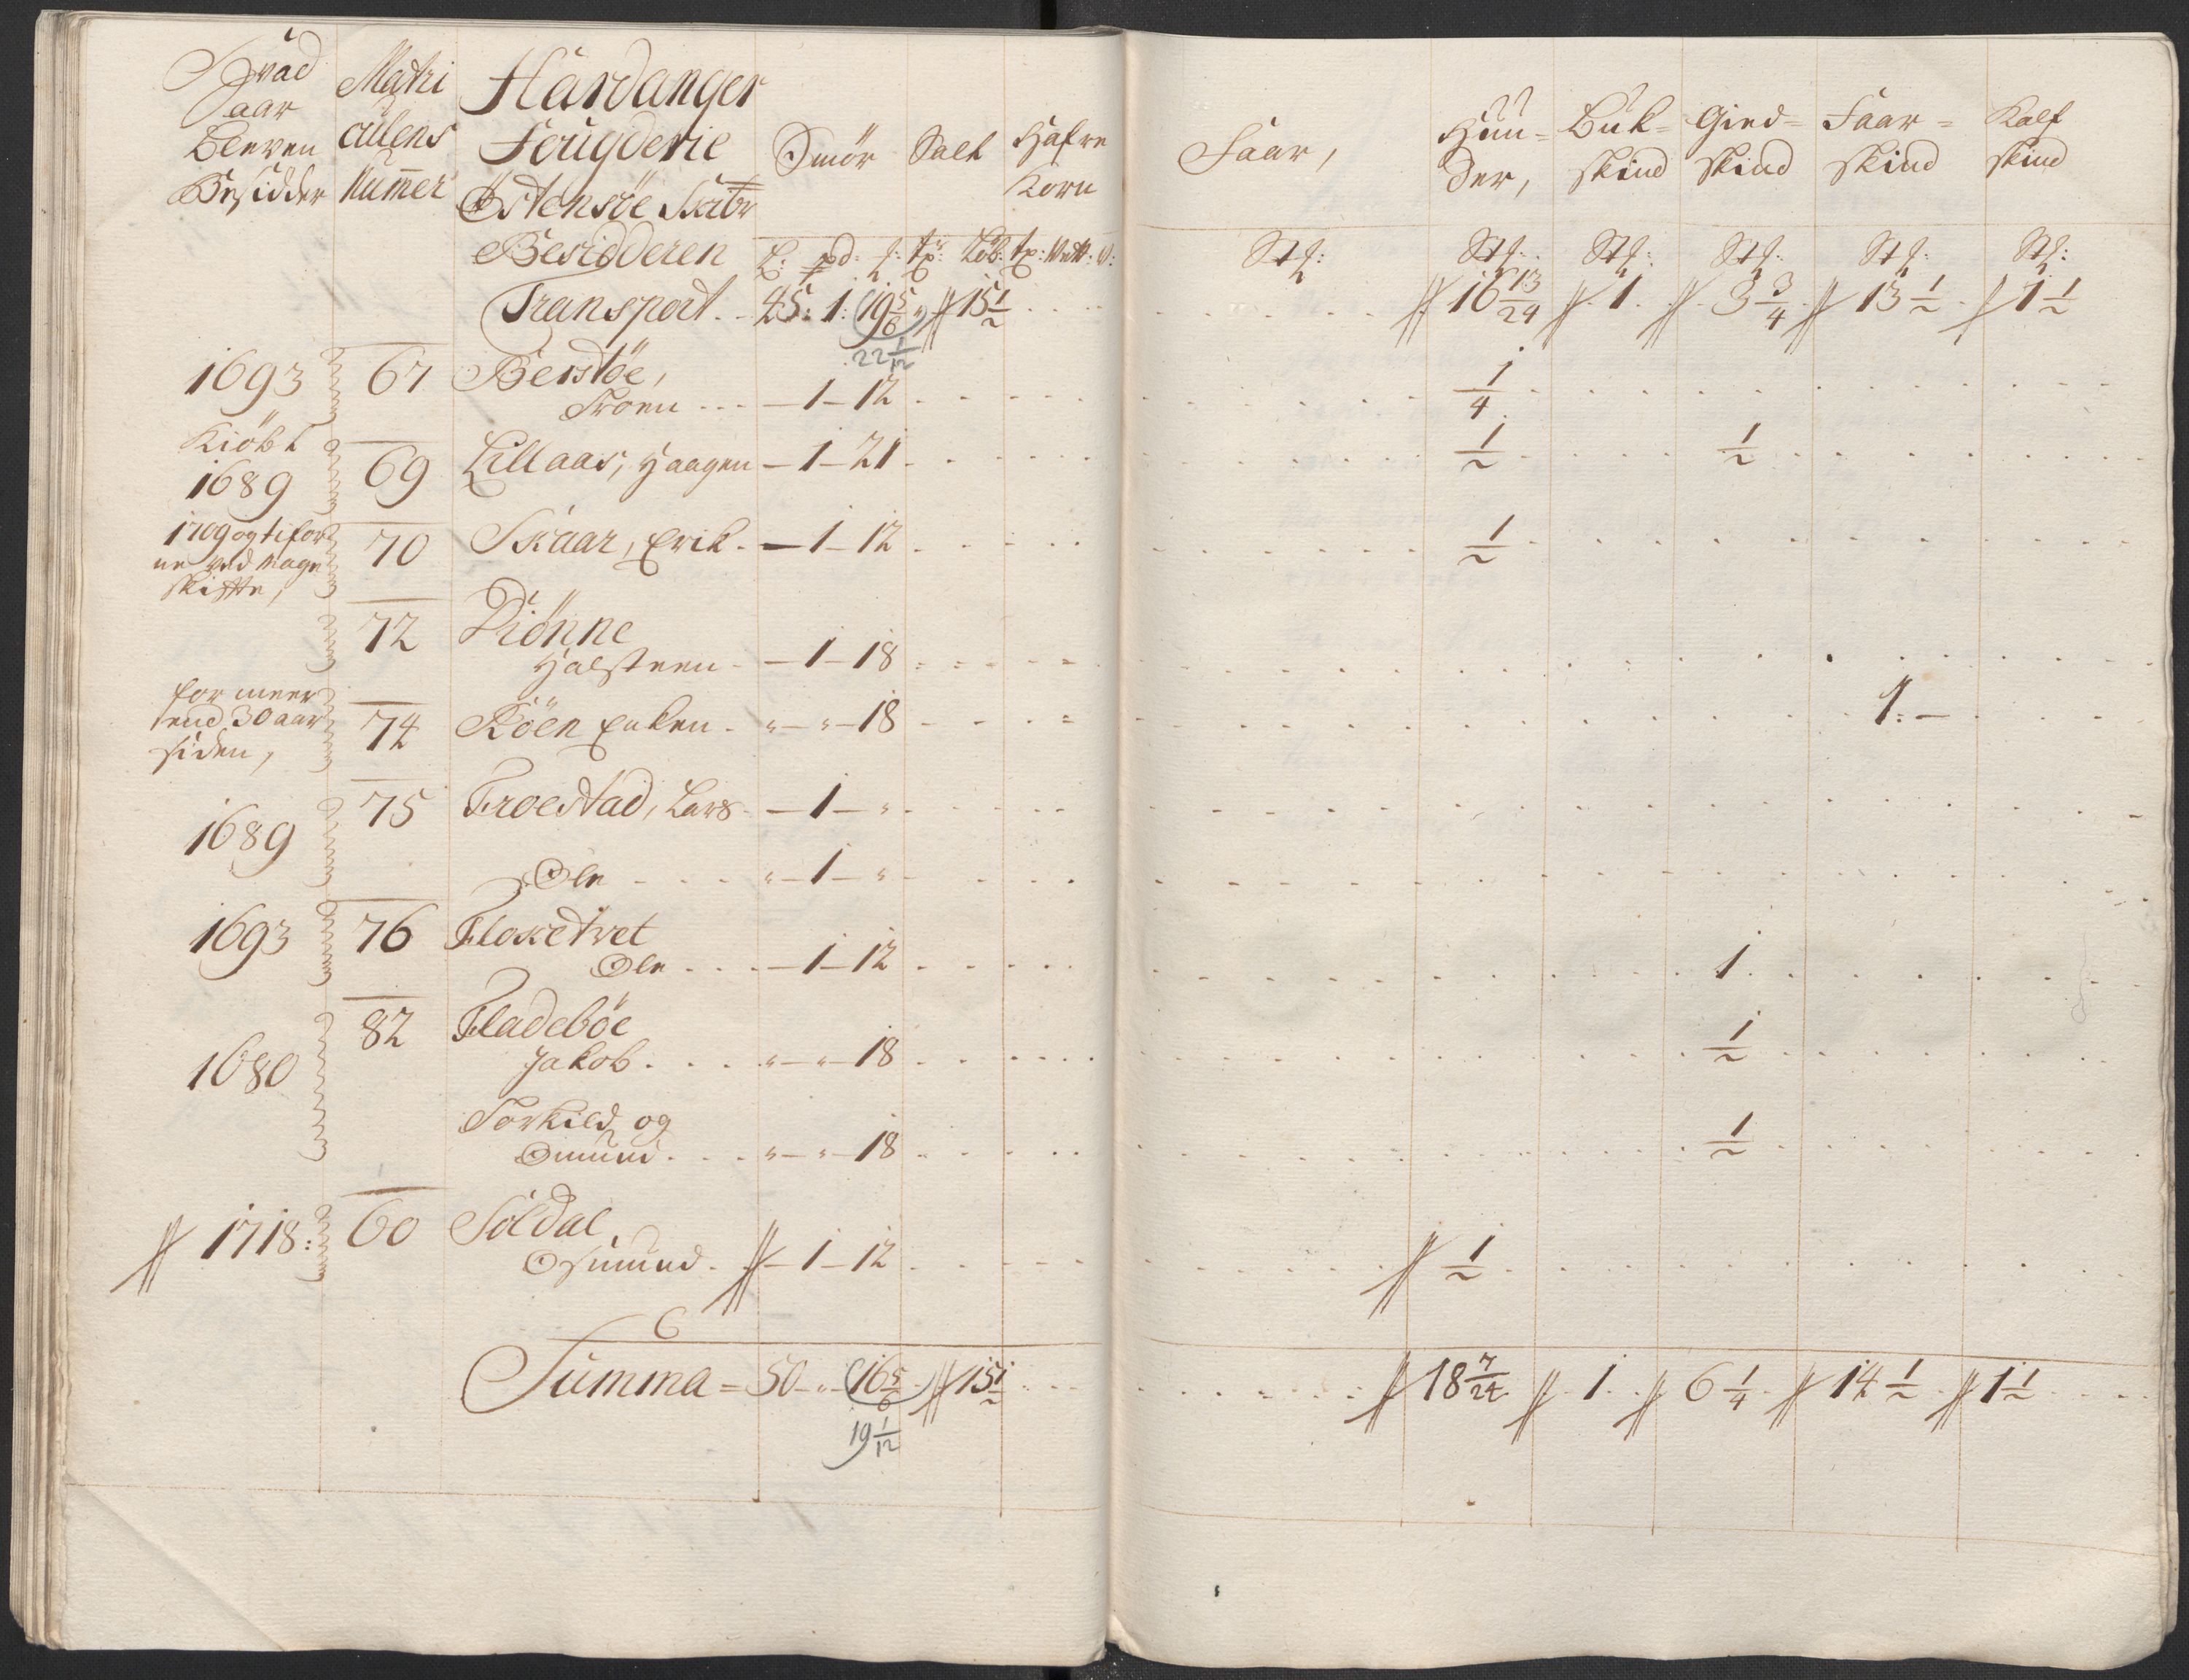 Hvad Aar Bleven Besidder | Matriculens Numer | Hardanger Fougderie Östensöe Skibr Besidderen | Smör | Salt | Hafre Korn | Faar, | Huuder, | Bukskind | Giedskind | Faarskind | Kalfskind
L: pd: | tp: Lob: | tp: | Stk: | Stk: | Stk: | Stk: | Stk: | Stk:
Transport. 45: 1: 19 5/6 | 15 1/2 | 16 13/24 | 1 | 3 3/4 | 13 1/2 | 1 1/2
22 1/12
1693 | 67 | Berstöe,
Troen - 1 - 12 | 1/4
Kiöbt
1689 | 69 | Lillaas, Haagen - 1 - 21 | 1/2 | 1/2
1709 og tilforne ved Mageskifte, | 70 | Skaar, Erik - 1 - 12 | 1/2
72 | Diönne
Halsteen - 1 - 18
for meer
tend 30 aar
siden, | 74 | Röen Enken - 18 | 1
1689 | 75 | Troestad, Lars - 1 -
Ole - 1 -
1693 | 76 | Floketvet
Ole - 1 - 12 | 1
1680 | 82 | Fladeböe
Jakob - 18 | 1/2
Torkild og
Omund - 18 | 1/2
1718: | 60 | Soldal,
Osmund - 1 - 12 | 1/2
Summa = 50 - 16 5/6 | 15 1/2 | 18 7/24 | 1 | 6 1/4 | 14 1/2 | 1 1/2
19 1/12